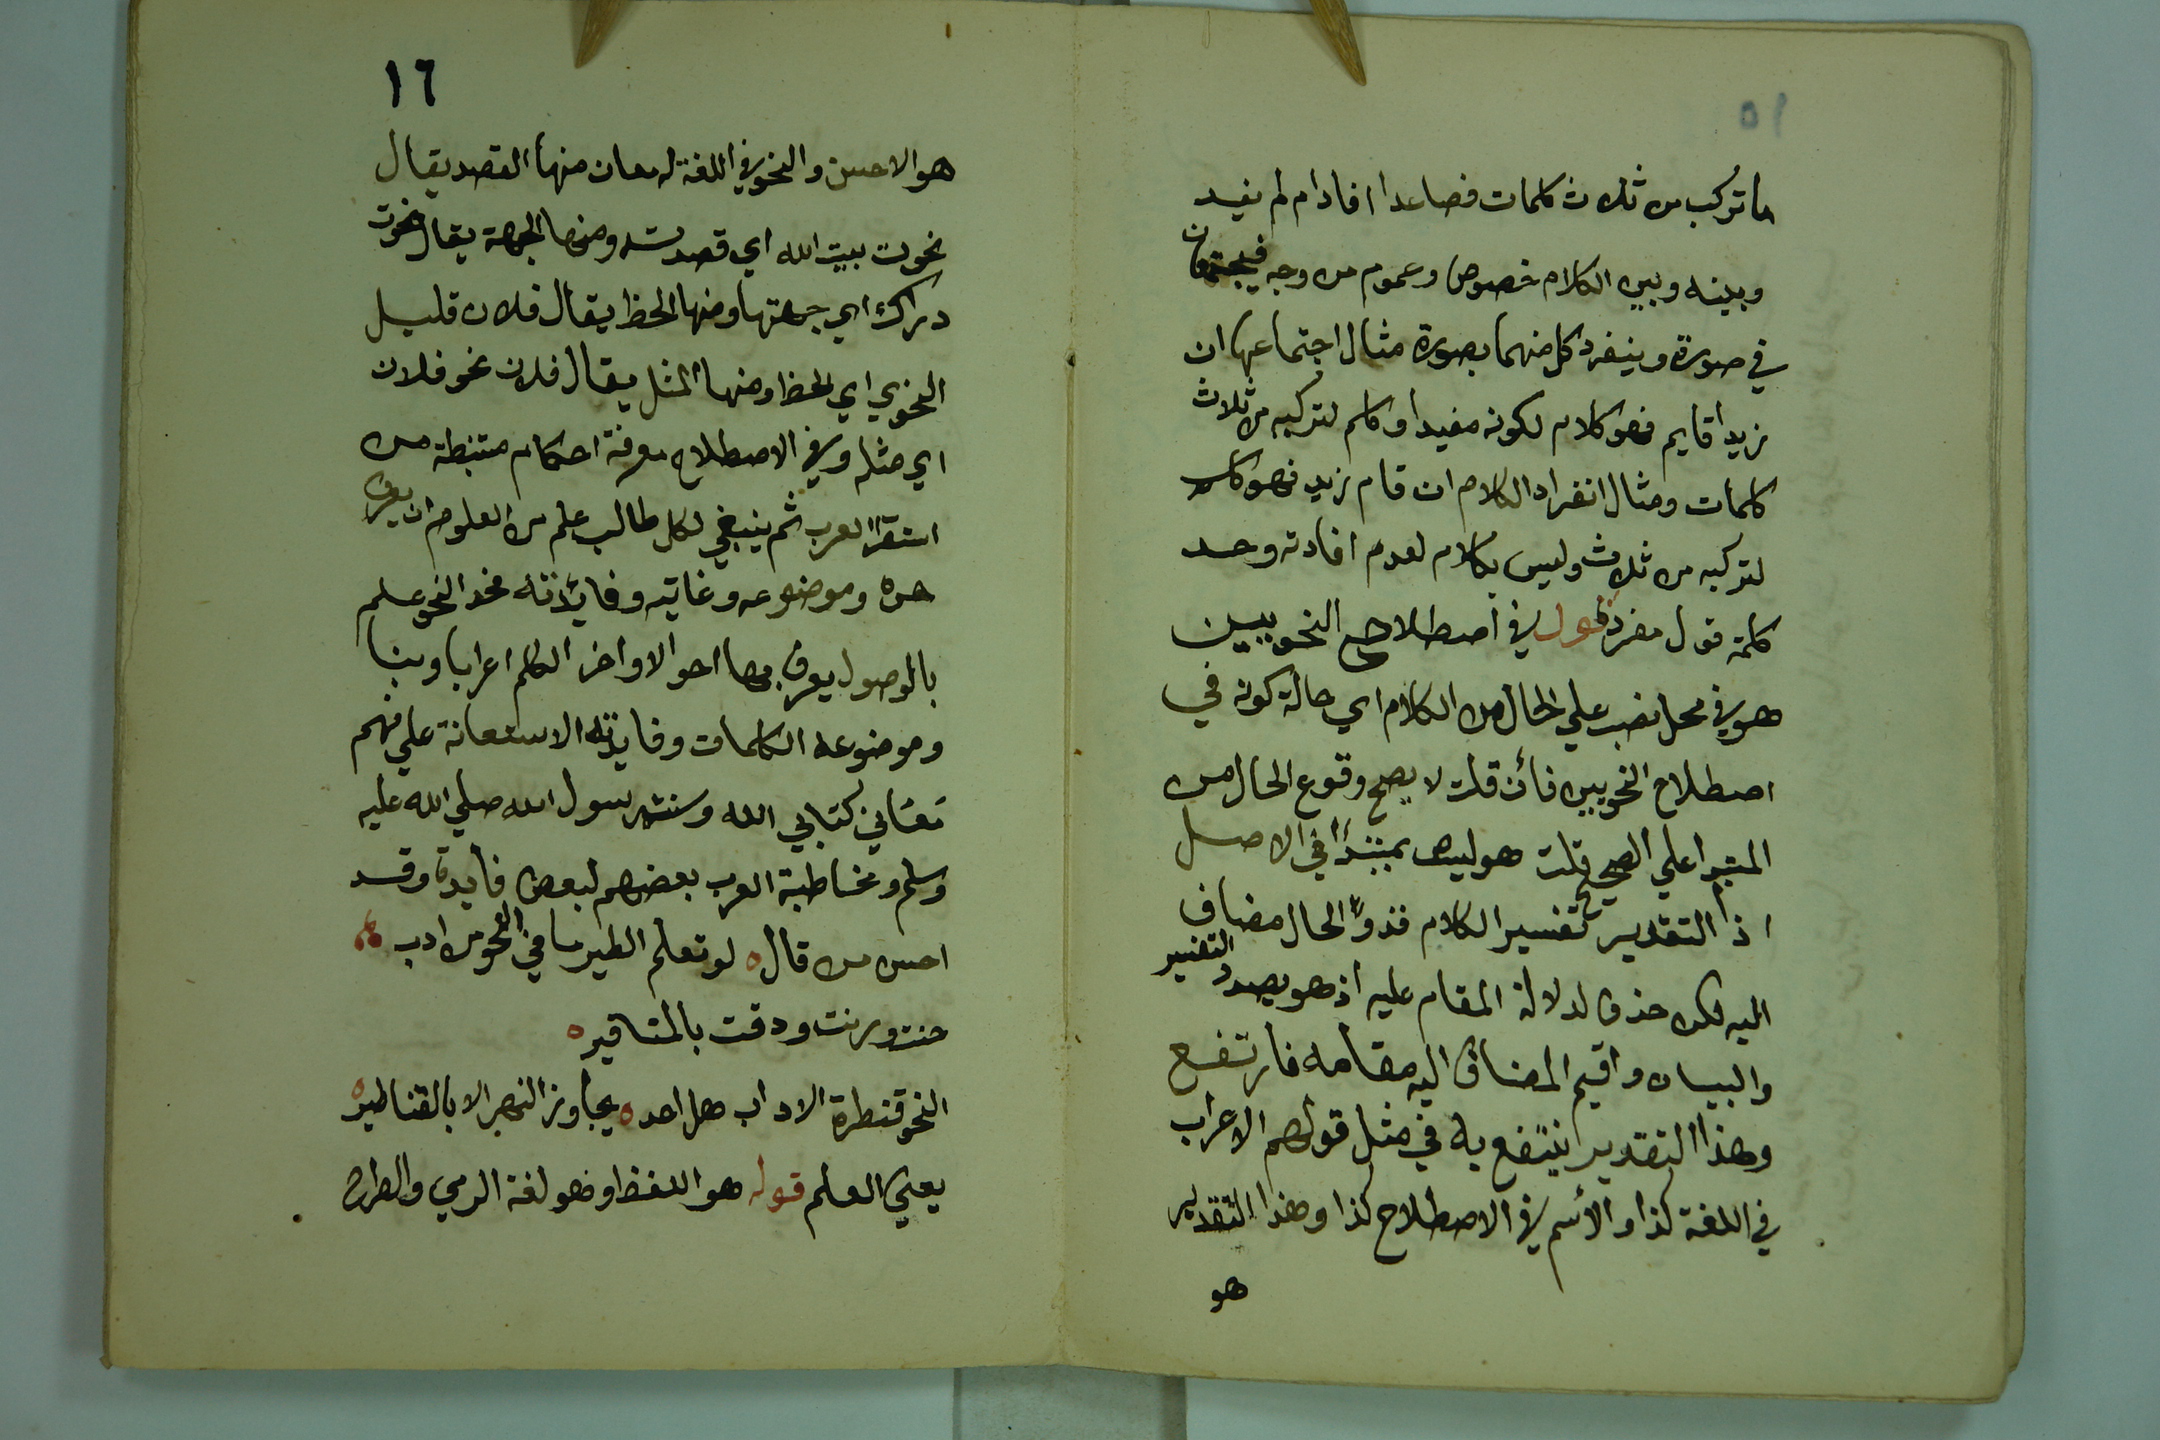 ١٥
ما تركب من ثلاث كلمات فصاعدا افاد ام لم يفيد
وبينه وبين الكلام خصوص وعموم من وجه فيجتمعان
في صورة وينفرد كل منهما بصورة مثال اجتماعهما ان
زيدا قايم فهو كلام لكونه مفيدا وكلم لتركبه من ثلاث
كلمات ومثال انفراد الكلام ان قام زيد فهو كلم
لتركبه من ثلاث وليس بكلام لعدم افادته وحد
كلمة قول مفرد قوله في اصطلاح النحويين
هو في محل نصب علي الحال من الكلام اي حالة كونه في
اصطلاح النحويين فأن قلت لا يصح وقوع الحال من
المبتدا علي الصحيح قلت هو ليس بمبتدأ في الاصل
اذ التقدير تفسير الكلام فذو الحال مضاف
اليه لكن حذف لدلالة المقام عليه اذ هو بصدد التفسير
والبيان واقيم المضاف اليه مقامه فارتفع
وهذا التقدير ينتفع به في مثل قولهم الاعراب
في اللغة كذا والأسم في الاصطلاح كذا وهذا التقدير
هو
١٦
هو الاحسن والنحو في اللغة له معان منها القصد يقال
نحوت بيت الله اي قصدته ومنها الجهة يقال نحوت
دارك اي جهتها ومنها الحظ يقال فلان قليل
النحوي اي الحظ ومنها المثل يقال فلان نحو فلان
اي مثله وفي الاصطلاح معرفة احكام متنبطة من
استقرا العرب ثم ينبغي لكل طالب علم من العلوم ان يعرف
حده وموضوعه وغايته وفايدته فحد النحو علم
بالوصول يعرف بها احوال اواخر الكلم اعرابا وبنا
وموضوعه الكلمات وفايدته الاستعانة علي فهم
معاني كتابي الله وسنة رسول الله صلي الله عليه
وسلم ومخاطبة العرب بعضهم لبعض فايدة وقد
احسن من قال ه لو تعلم الطير ما في النحو من ادب
حنت ورنت ودقت بالمناقير ه
النحو قنطرة الاداب هل احد ه يجاوز النهر الا بالقناطير ه
يعني العلم قوله هو اللفظ وهو لغة الرمي والطرح